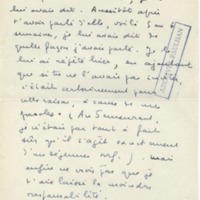 lui avais dit. Aussitôt après
t'avoir parlé d'elle, voilà 5 ou 6
semaines, je lui avais dit de
quelle façon j'avais parlé. Je
lui ai répété hier, en ajoutant
que si tu ne l'avais pas invitée,
c'était certainement pour
cette raison, à cause de mes
paroles. (Au demeurant,
je n'étais pas tout à fait
sûr qu'il s'agît exactement
d'un déjeuner) mais
enfin ne vois pas que je
t'aie laissé la moindre
responsabilité.